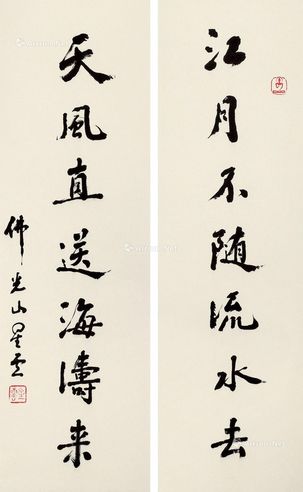 江月不随流水去
天風直送海濤来
佛光山星雲